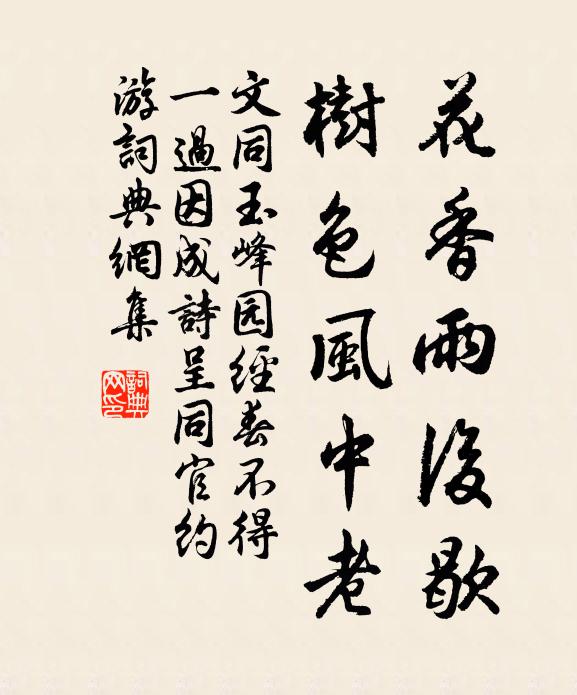 花香雨後歇
樹色風中老
文同玉峰园經春不得
一過因成詩呈同官約
游詞典網集
詞典网印